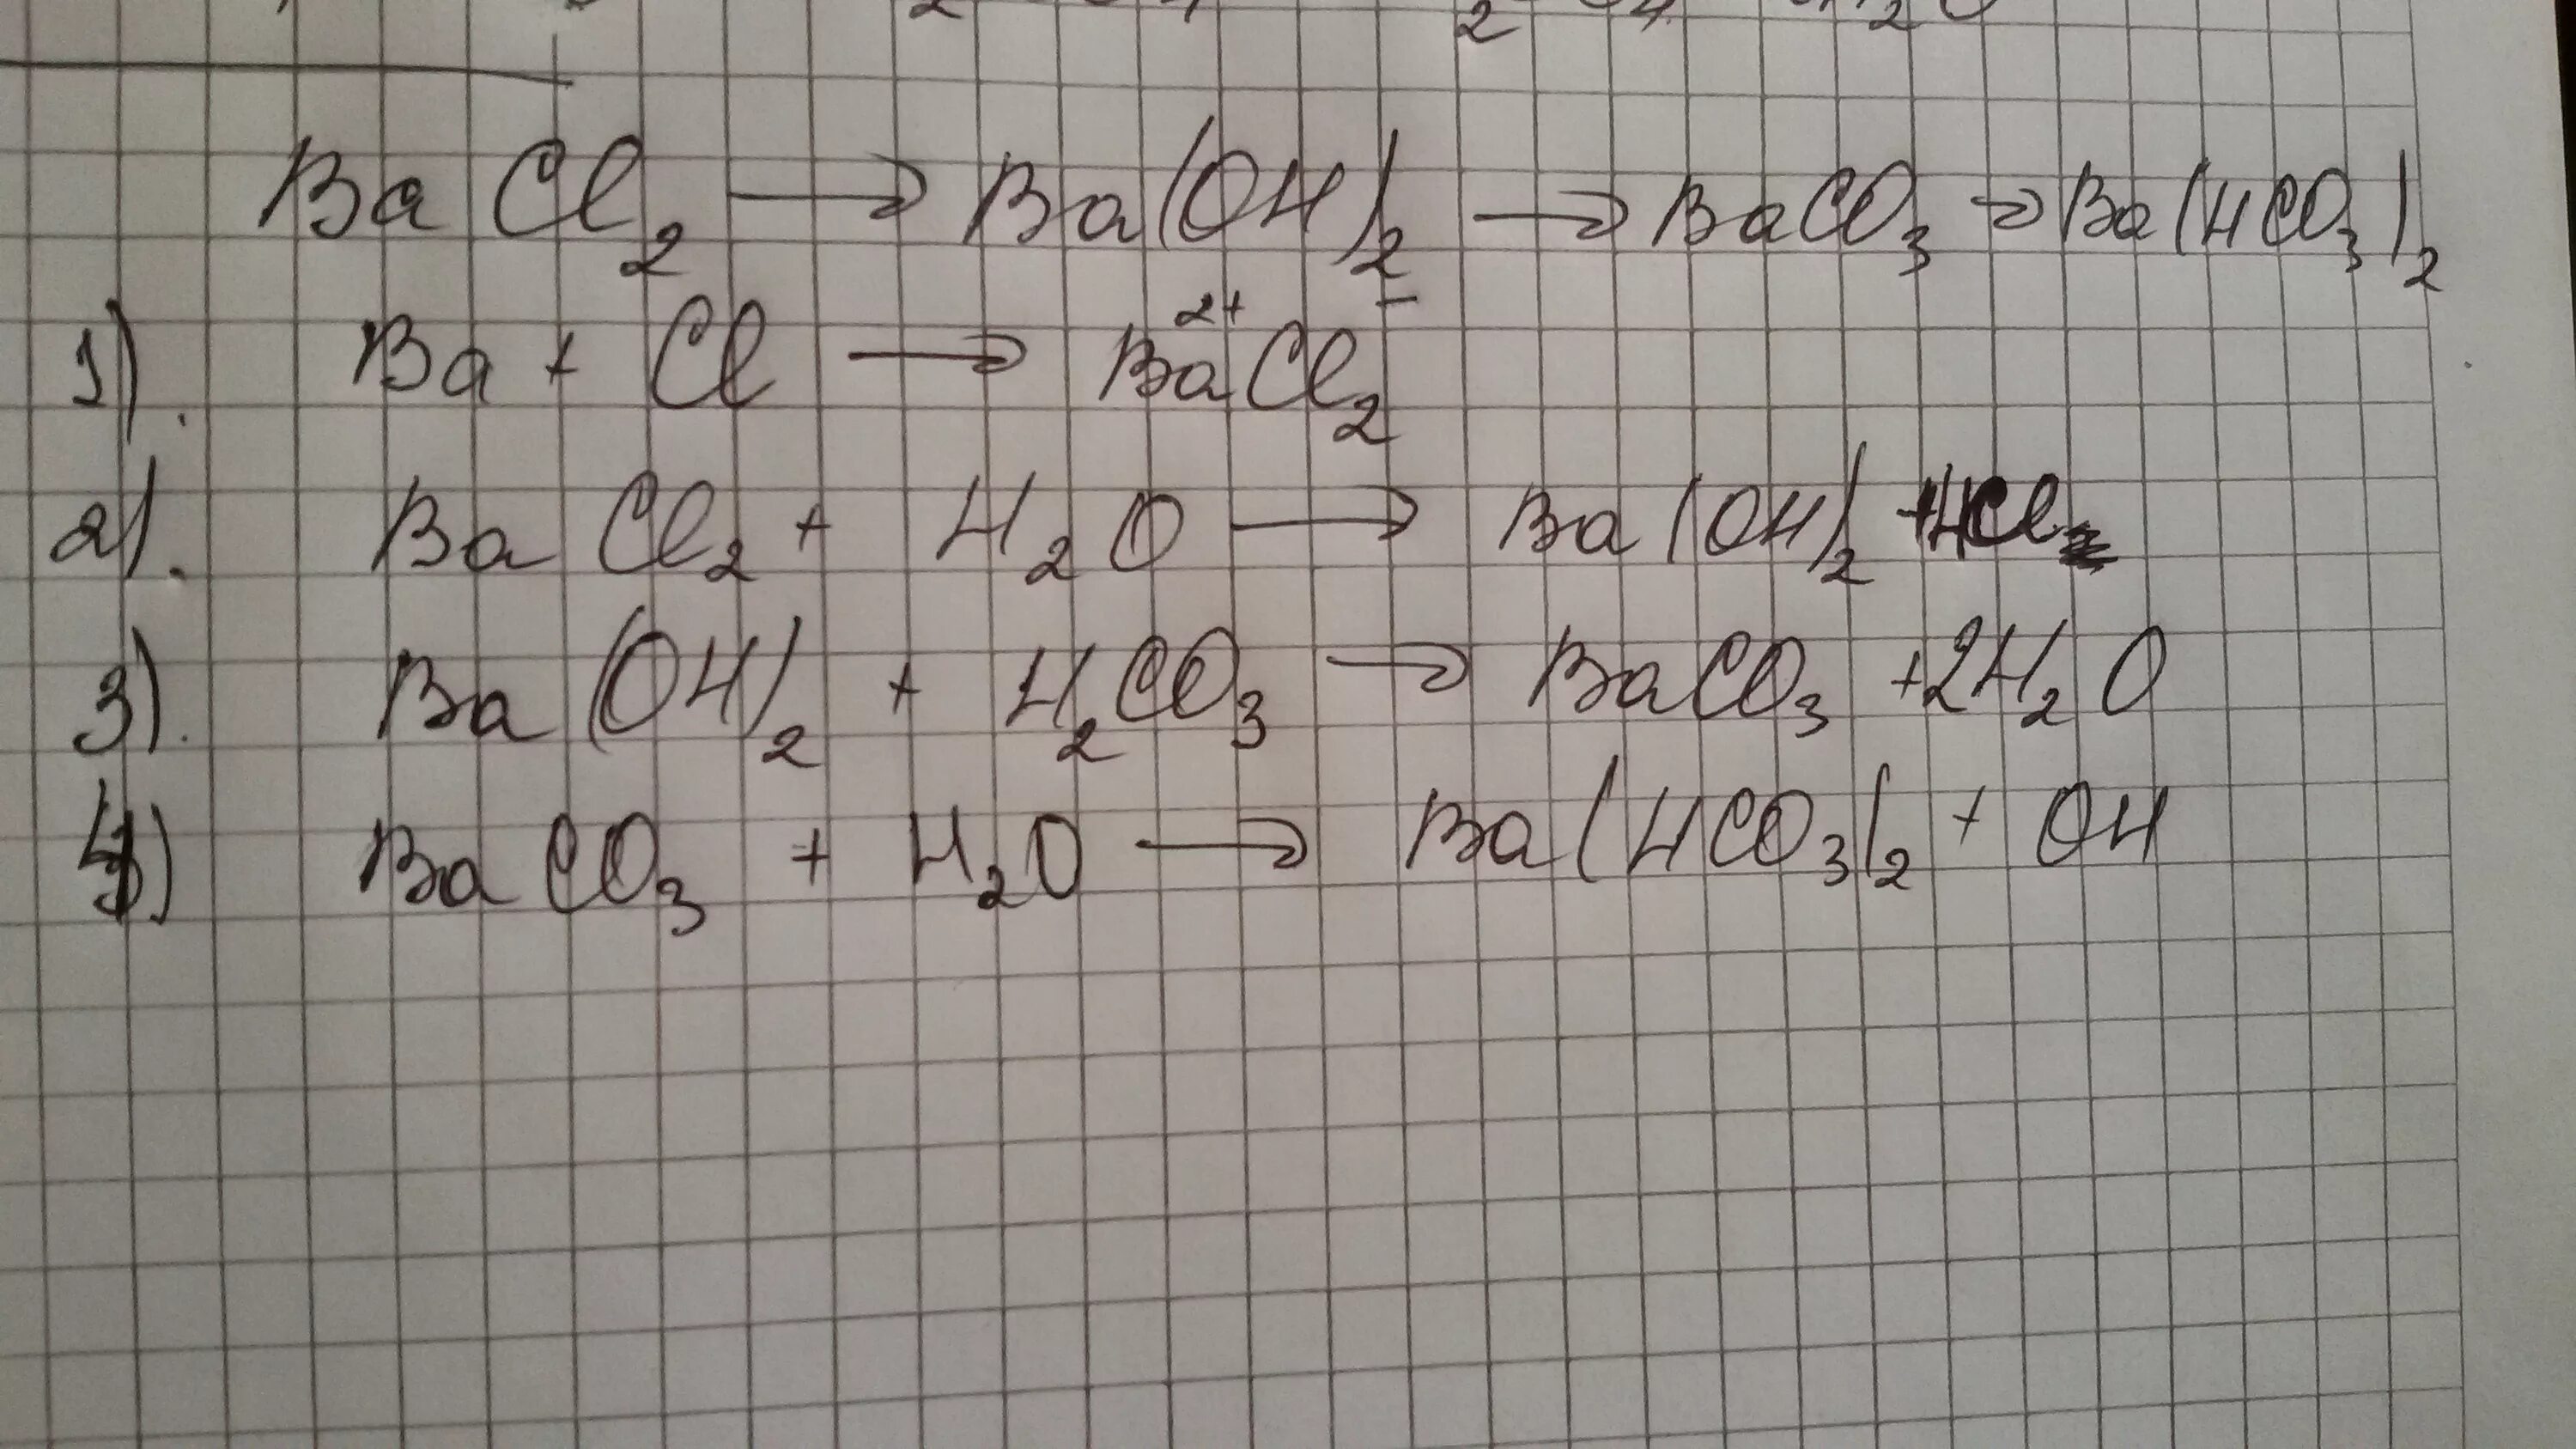 BaCl₂ → Ba(OH)₂ → BaCO₃ → Ba(HCO₃)₂
1). Ba + Cl → Ba²⁺Cl₂⁻
2). BaCl₂ + H₂O → Ba(OH)₂ + HCl
3). Ba(OH)₂ + H₂CO₃ → BaCO₃ + 2H₂O
4) BaCO₃ + H₂O → Ba(HCO₃)₂ + OH